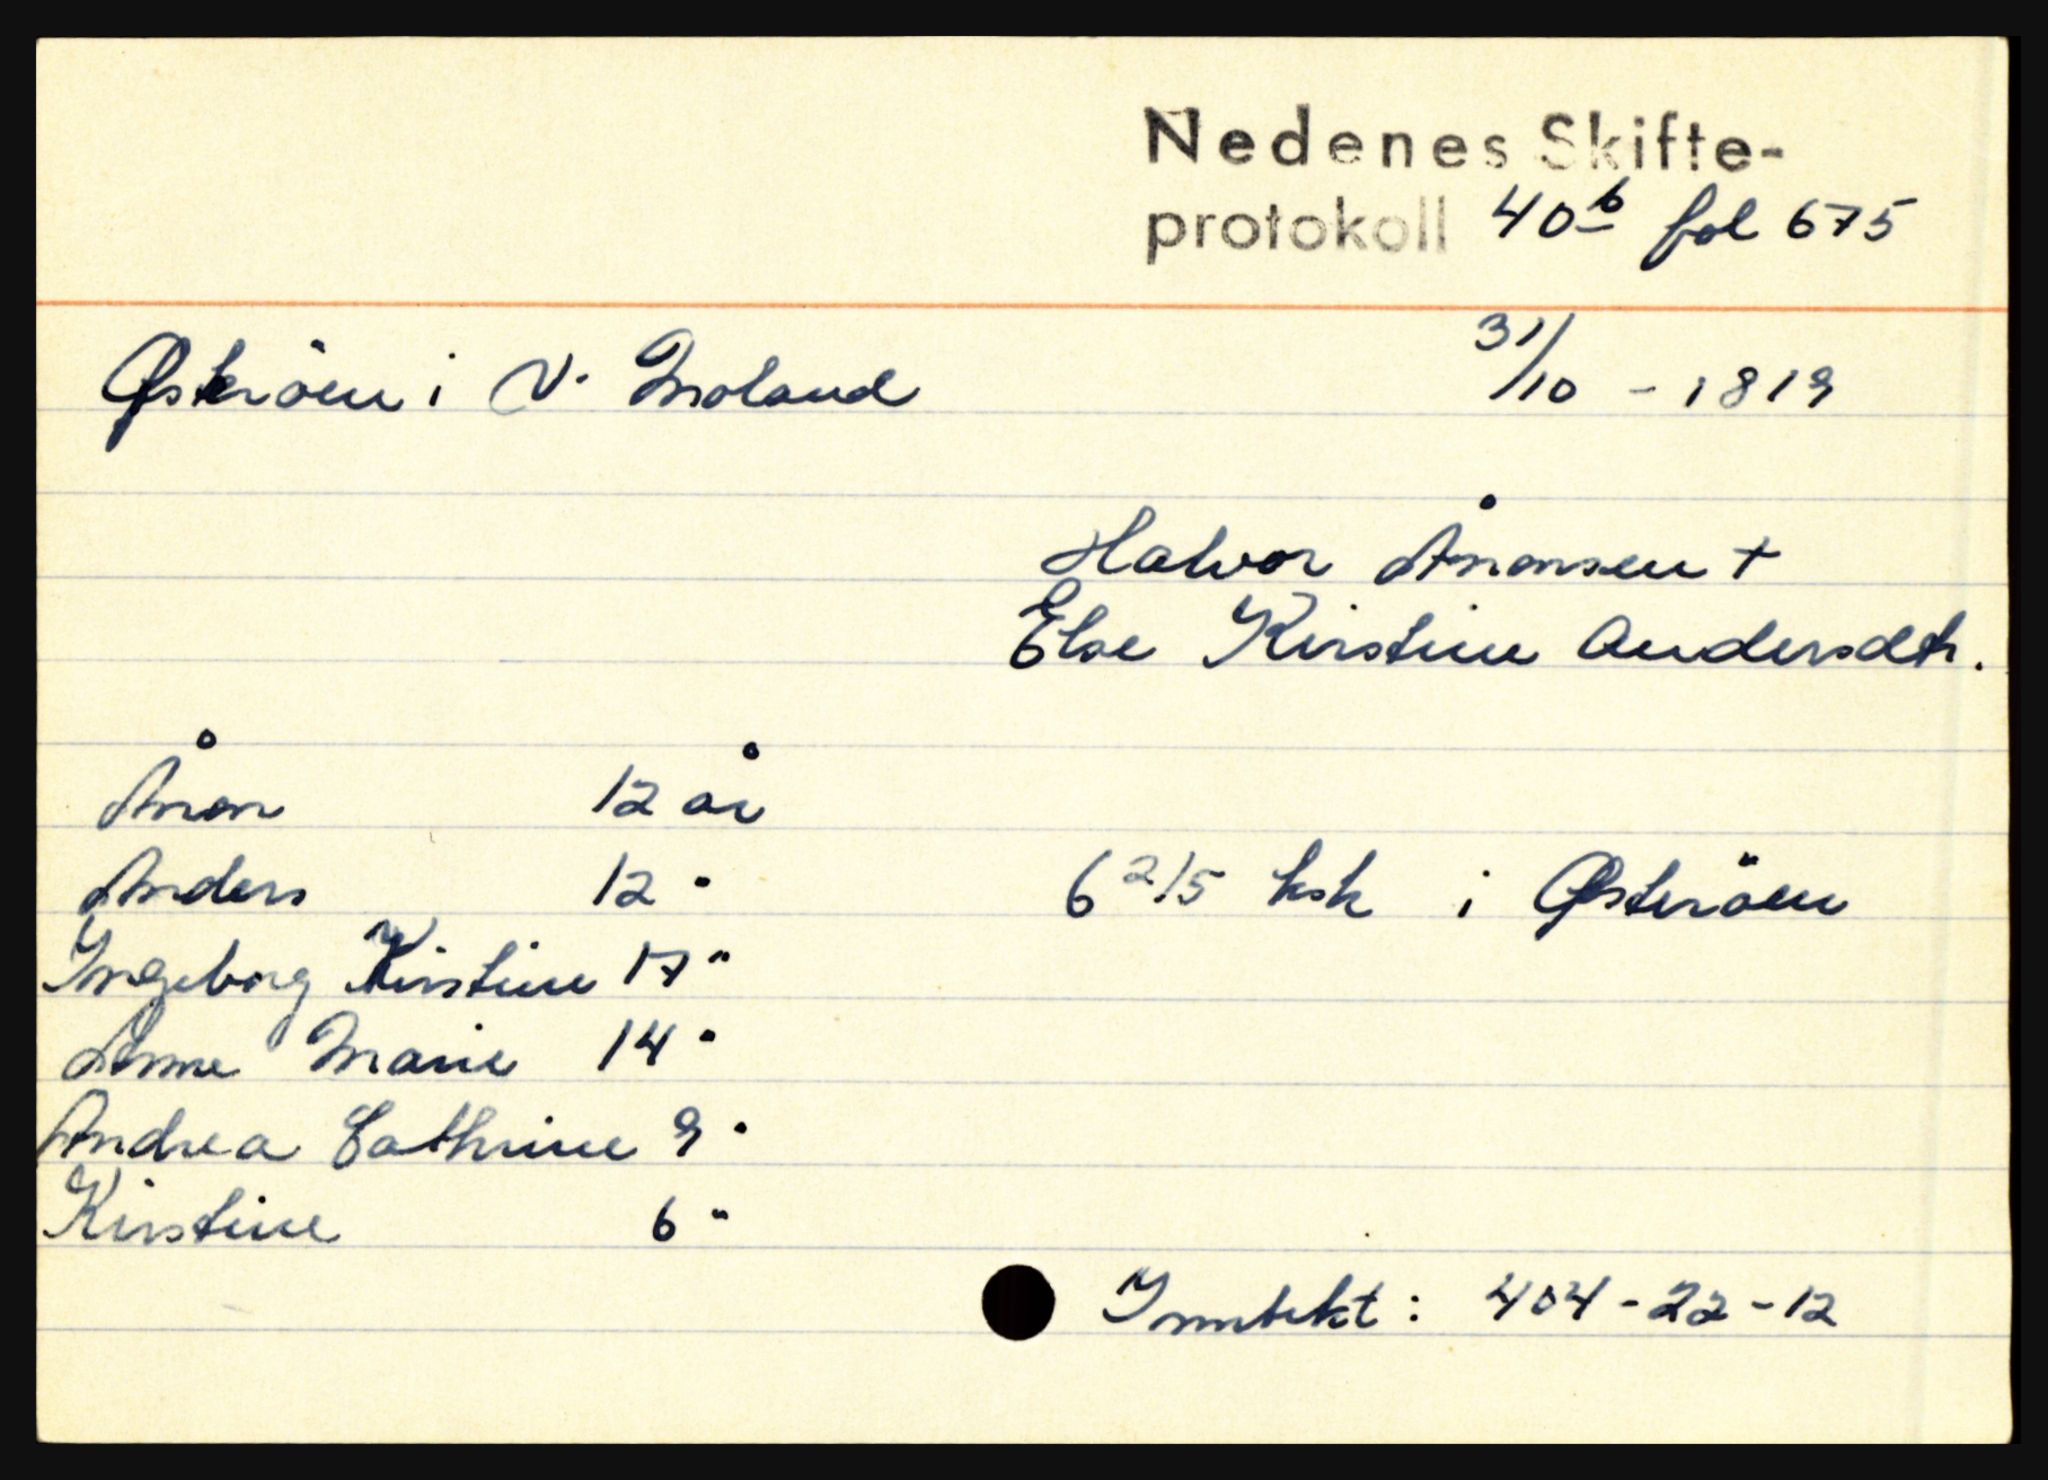 Nedenes Skifte-
protokoll 40b fol 675
Østeröen i V. Moland 31/10 - 1819
Halvor Ånonsen +
Else Kirstine Andersdtr.
Ånon 12 år
Anders 12 " 6 2/5 ksk i Østeröen
Ingeborg Kirstine 17 "
Anne Marie 14 "
Andrea Cathrine 9 "
Kirstine 6 "
Inntekt: 404-22-12